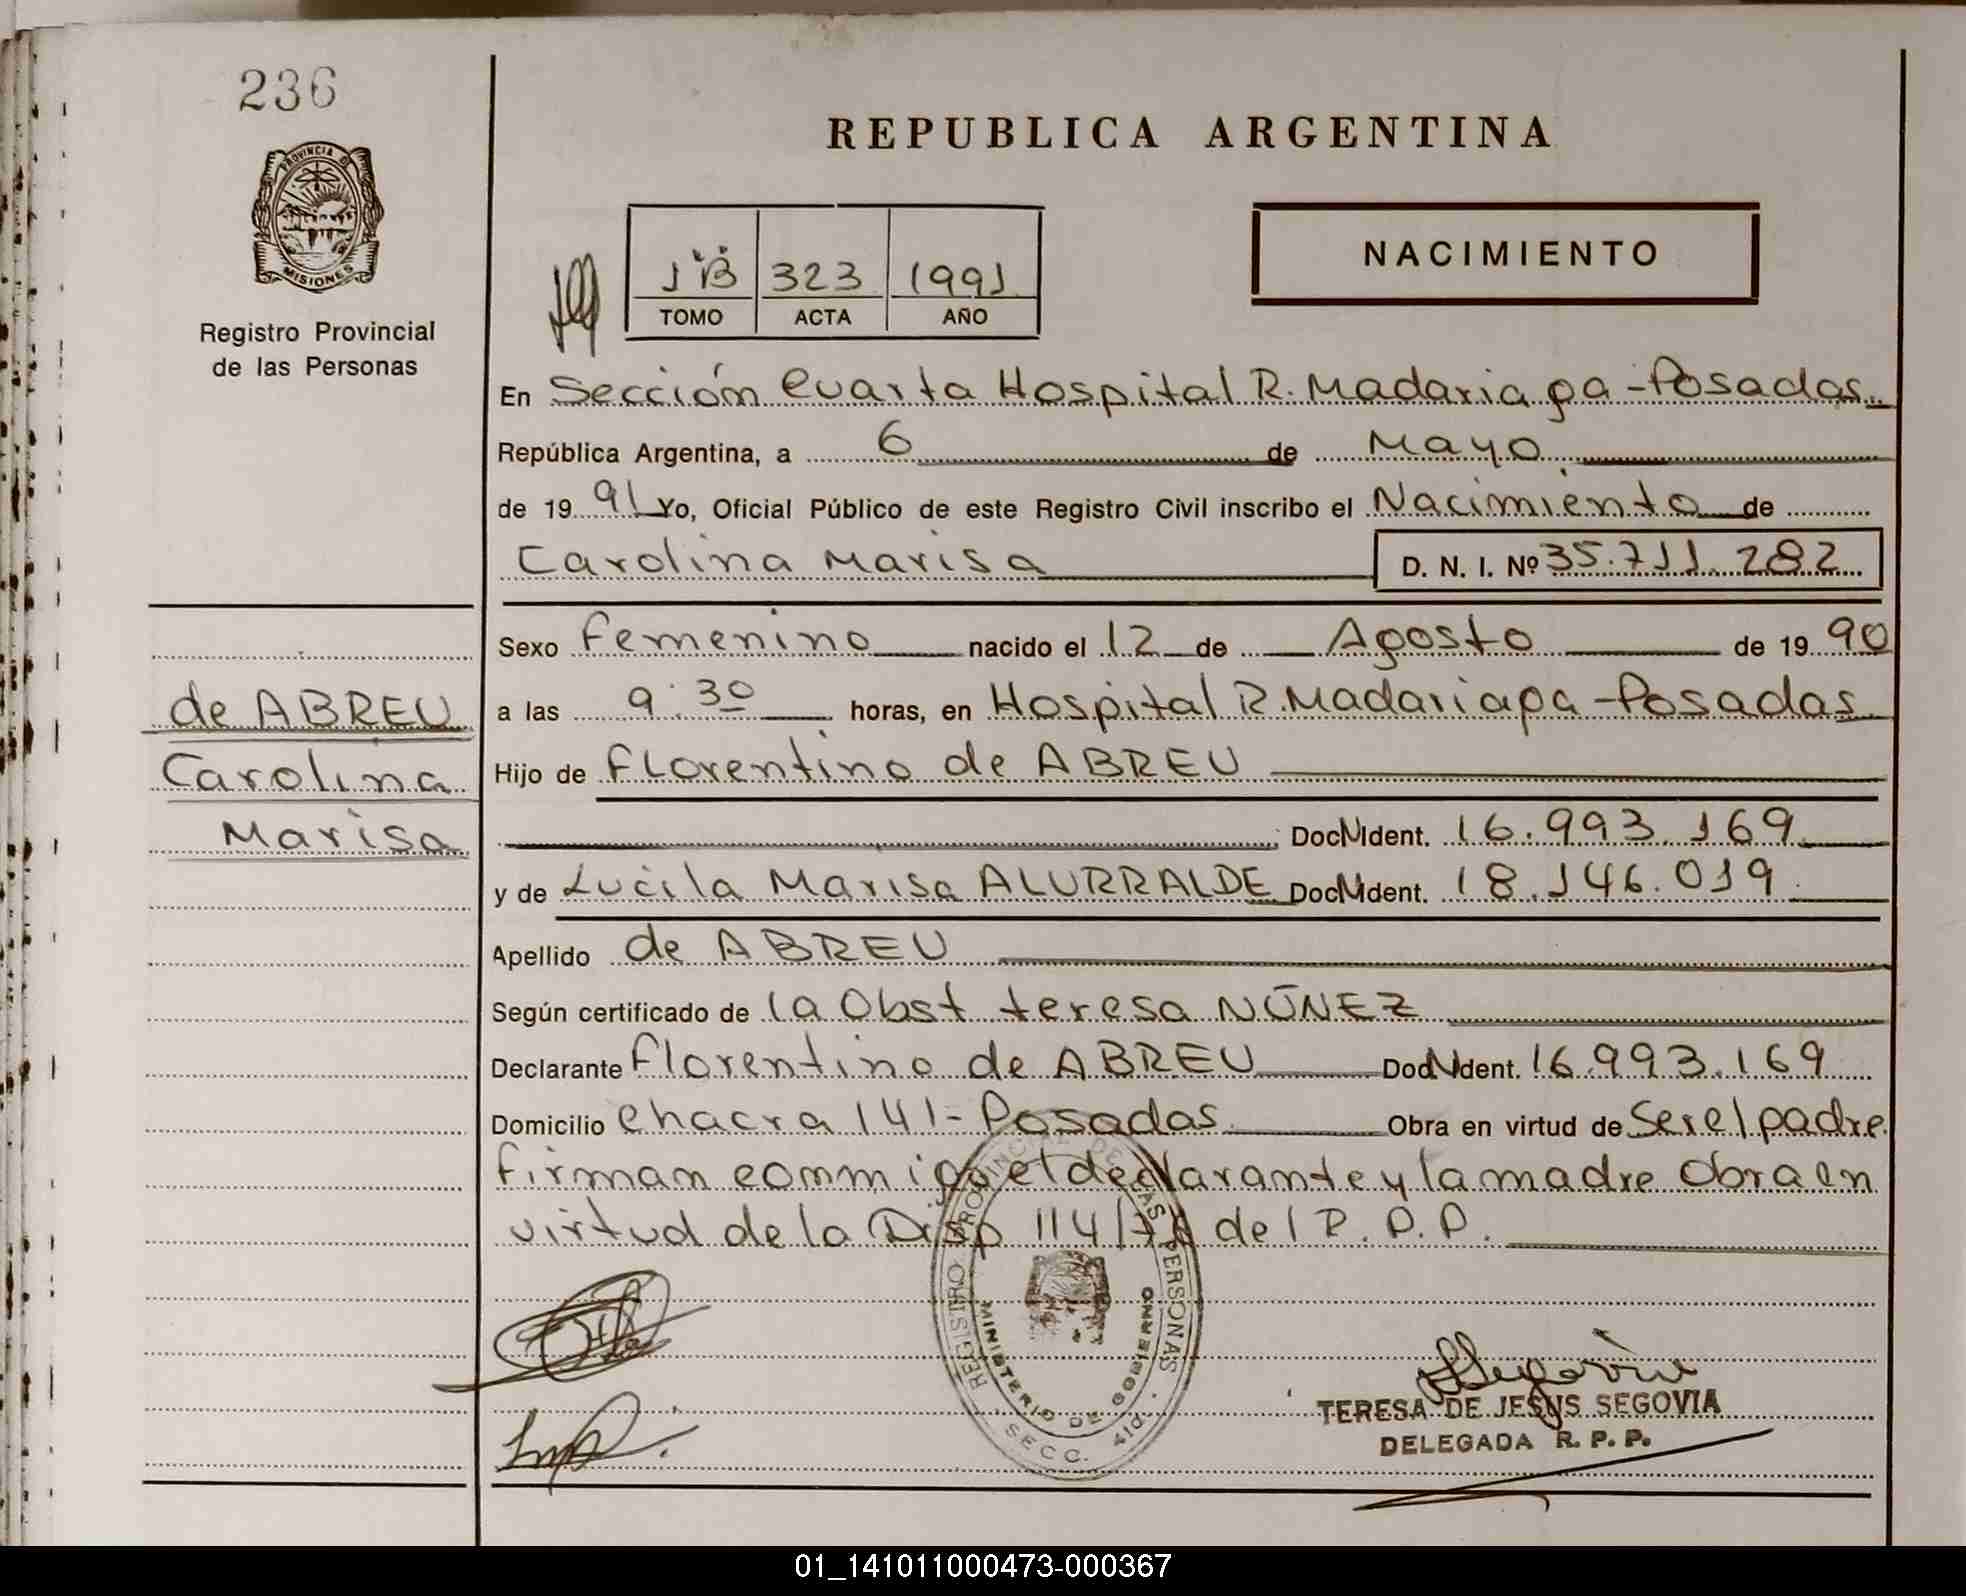 236
PROVINCIA DE
MISIONES
Registro Provincial
de las Personas
de ABREU
Carolina
Marisa
REPUBLICA ARGENTINA
NACIMIENTO
1"B" 323 1991
TOMO ACTA AÑO
En Sección Cuarta Hospital R. Madariaga - Posadas
República Argentina, a 6 de Mayo
de 1991 Yo, Oficial Público de este Registro Civil inscribo el Nacimiento de
Carolina Marisa D. N. I. Nº 35.711.282
Sexo Femenino nacido el 12 de Agosto de 1990
a las 9:30 horas, en Hospital R. Madariaga - Posadas
Hijo de Florentino de ABREU
Doc. N Ident. 16.993.169
y de Lucila Marisa ALURRALDE Doc. N Ident. 18.146.019
Apellido de ABREU
Según certificado de la Obst teresa NÚÑEZ
Declarante Florentino de ABREU Doc. N Ident. 16.993.169
Domicilio Chacra 141 - Posadas Obra en virtud de Ser el padre
firman conmigo el declarante y la madre Obra en
virtud de la Disp 114/ del R.P.P.
REGISTRO PROVINCIAL DE LAS PERSONAS
MINISTERIO DE GOBIERNO
SECC. 4ta.
TERESA DE JESUS SEGOVIA
DELEGADA R. P. P.
01_141011000473-000367